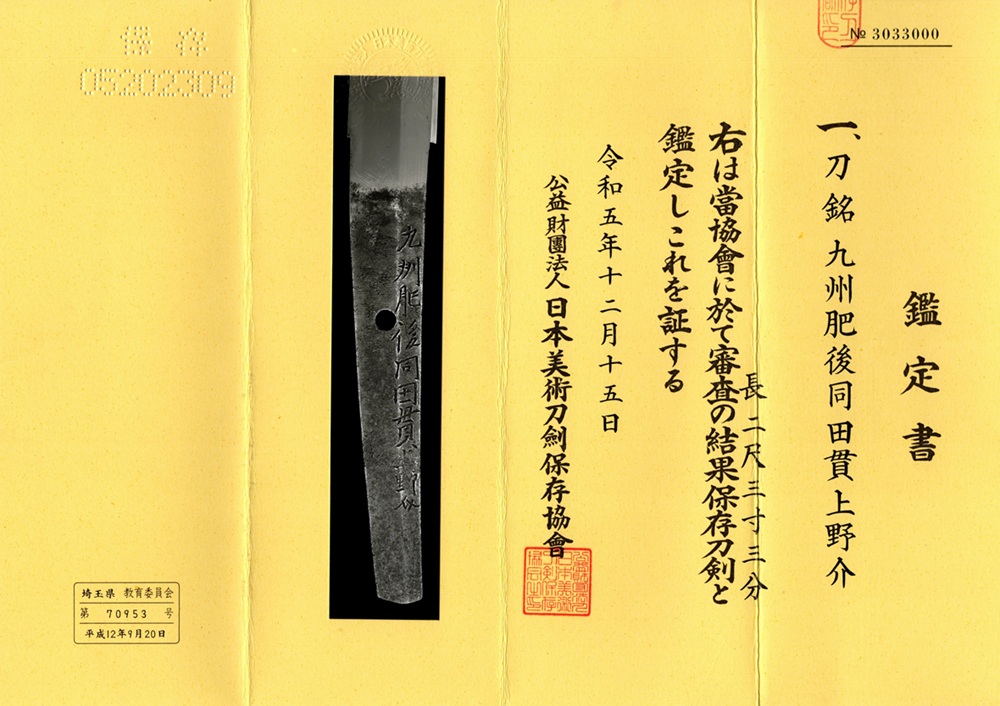 № 3033000
鑑定書
一、刀 銘 九州肥後同田貫上野介
長 二尺三寸三分
右は當協會に於て審査の結果保存刀剣と
鑑定しこれを証する
令和五年十二月十五日
公益財團法人 日本美術刀劍保存協會
九州肥後同田貫上野介
保存
05202309
埼玉県 教育委員会
第 70953 号
平成12年9月20日